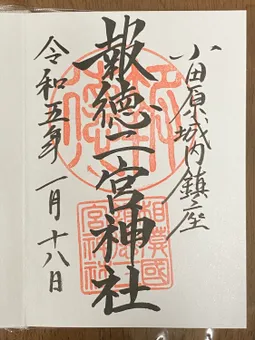 小田原城内鎮座
報徳二宮神社
令和五年一月十八日
相模國